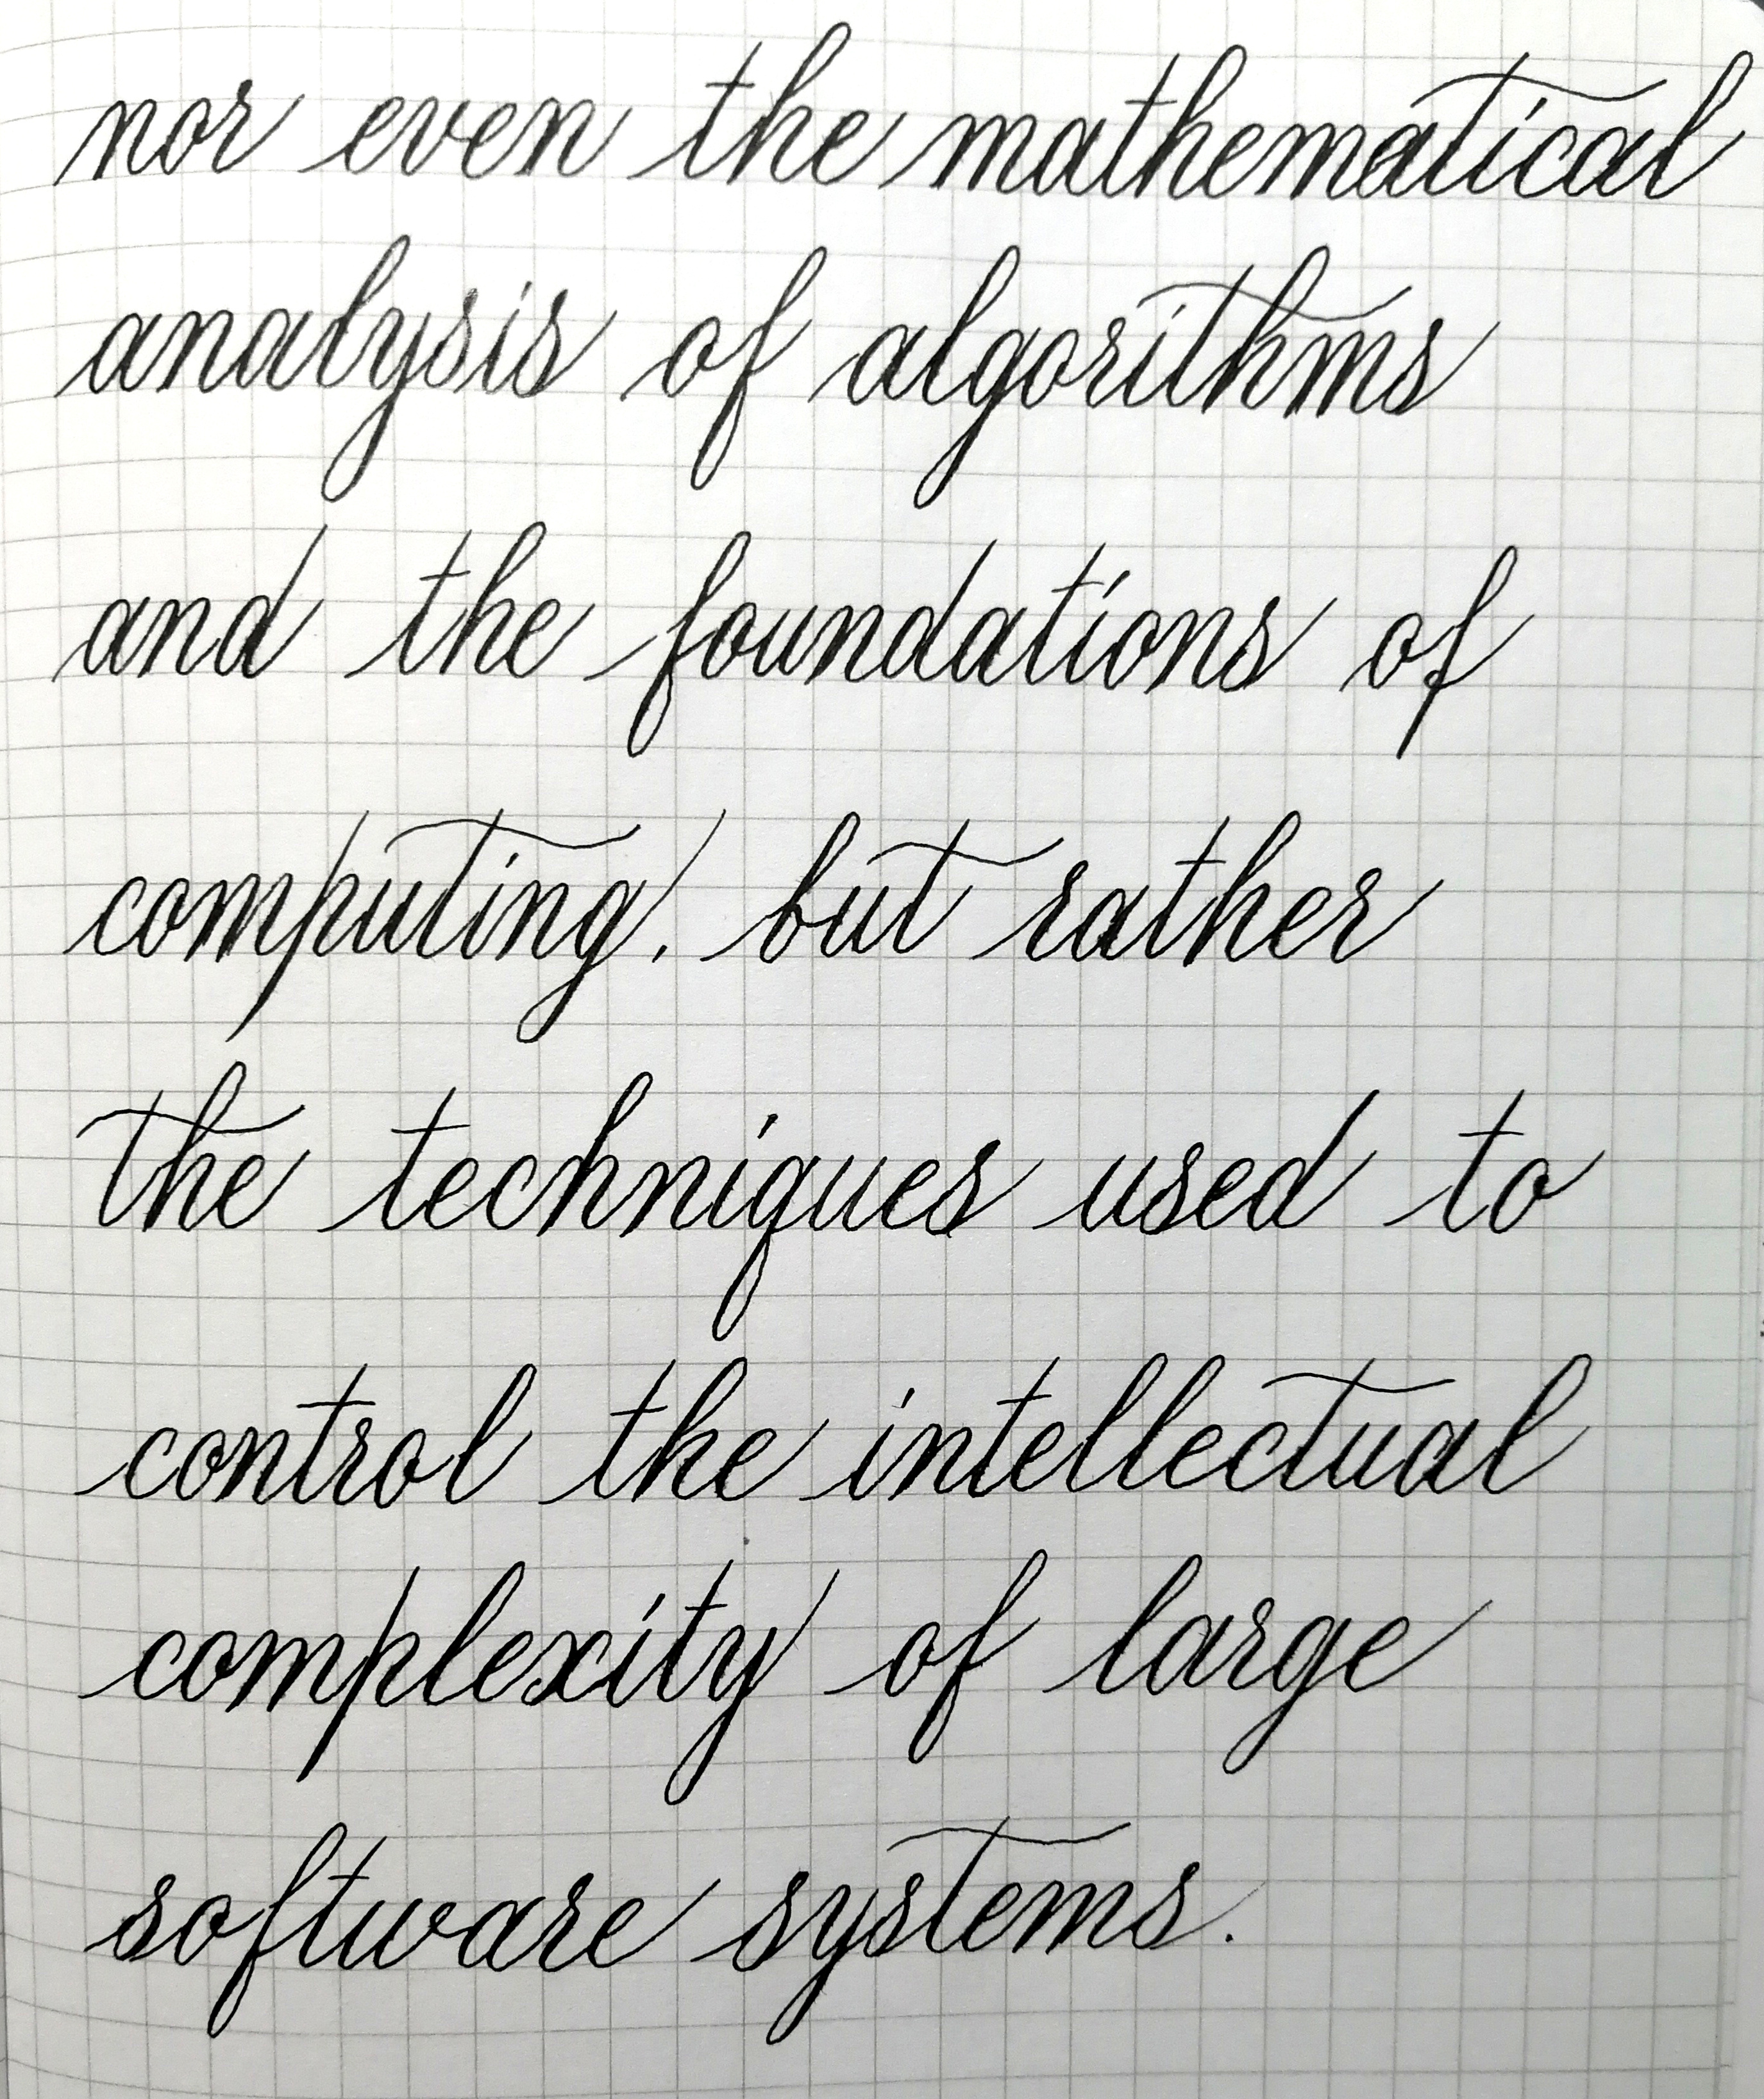 nor even the mathematical
analysis of algorithms
and the foundations of
computing, but rather
the techniques used to
control the intellectual
complexity of large
software systems.